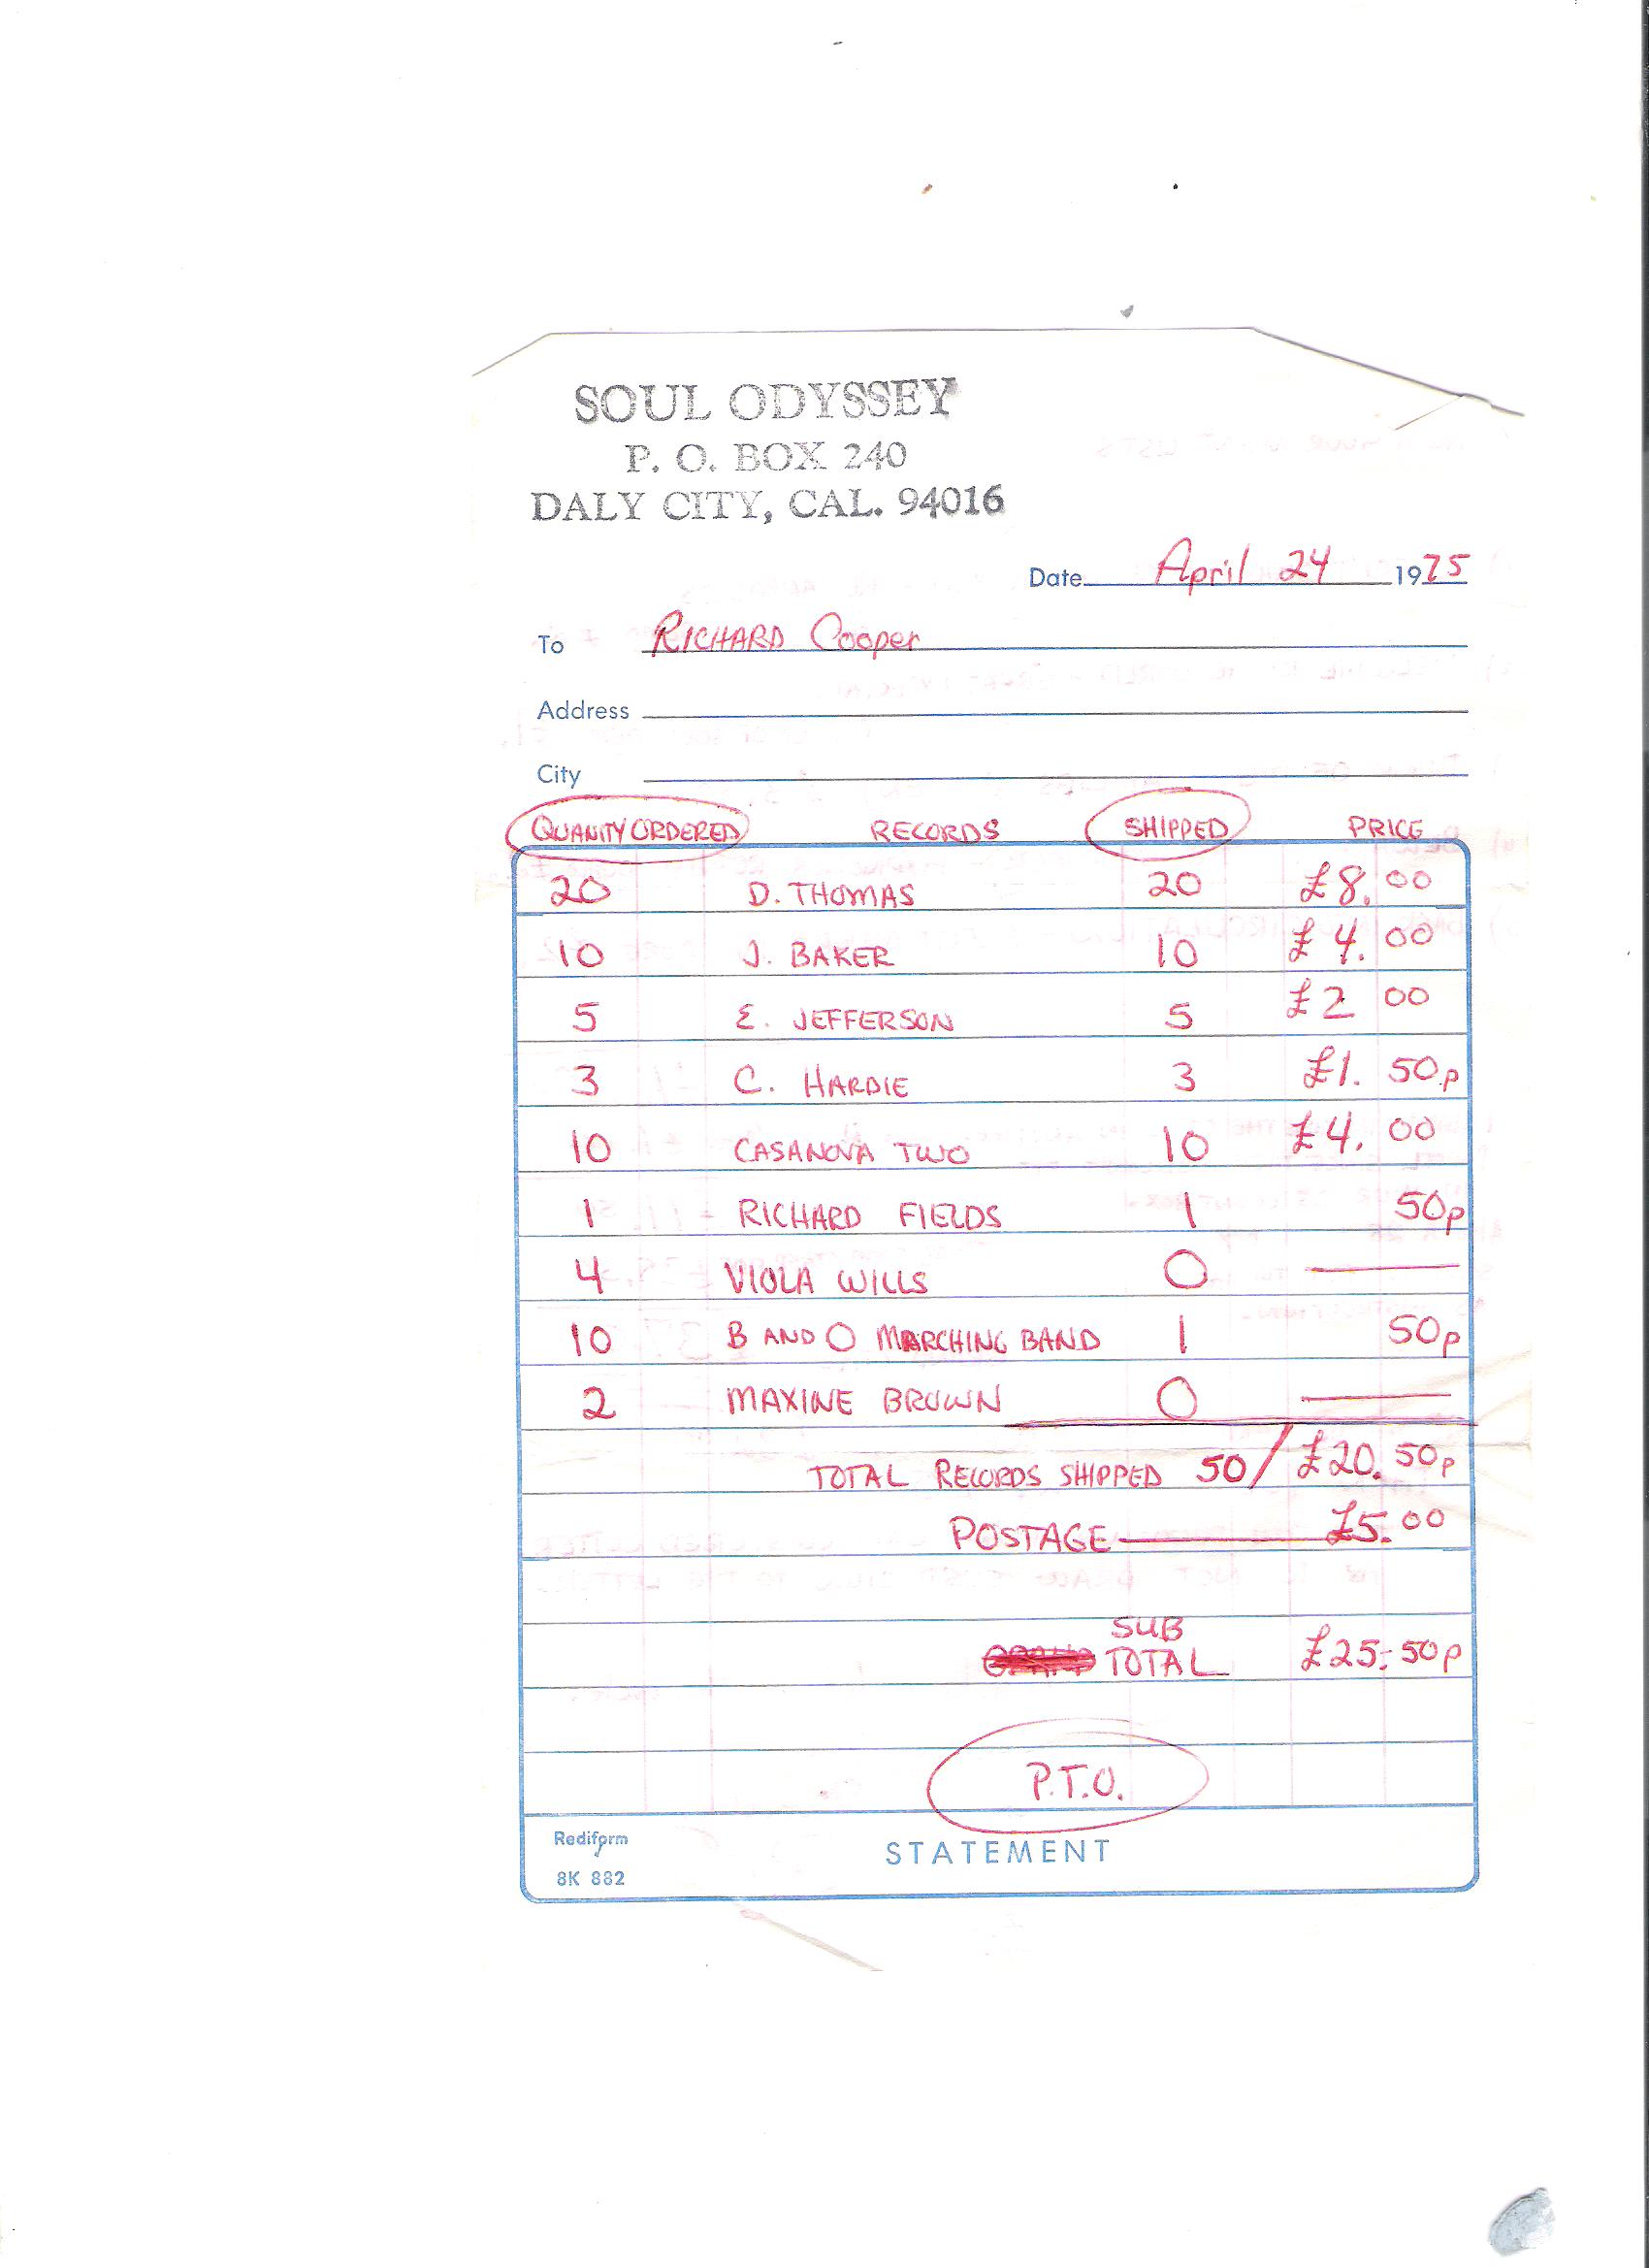 SOUL ODYSSEY
P. O. BOX 240
DALY CITY, CAL. 94016
Date April 24 1975
To RICHARD Cooper
Address
City
QUANITY ORDERED RECORDS SHIPPED PRICE
20 D. THOMAS 20 £8.00
10 J. BAKER 10 £4.00
5 E. JEFFERSON 5 £2 00
3 C. HARDIE 3 £1. 50p
10 CASANOVA TWO 10 £4.00
1 RICHARD FIELDS 1 50p
4 VIOLA WILLS 0 —
10 B AND O MARCHING BAND 1 50p
2 MAXINE BROWN 0 —
TOTAL RECORDS SHIPPED 50 / £20.50p
POSTAGE — £5.00
SUB
TOTAL £25.50p
P.T.O.
Rediform
8K 882
STATEMENT